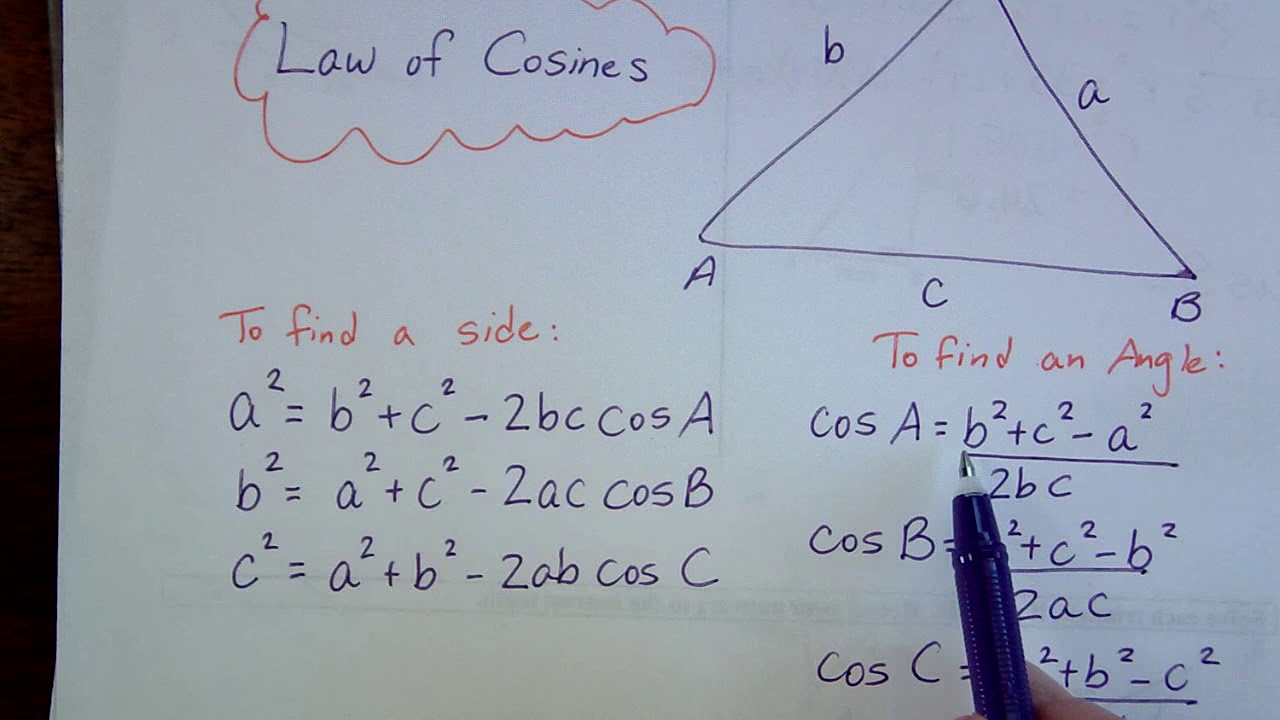 Law of Cosines
b
a
A
C
B
To find a side:
a² = b² + c² - 2bc cos A
b² = a² + c² - 2ac cos B
c² = a² + b² - 2ab cos C
To find an Angle:
cos A = b² + c² - a²
2bc
cos B = ² + c² - b²
2ac
cos C = ² + b² - c²